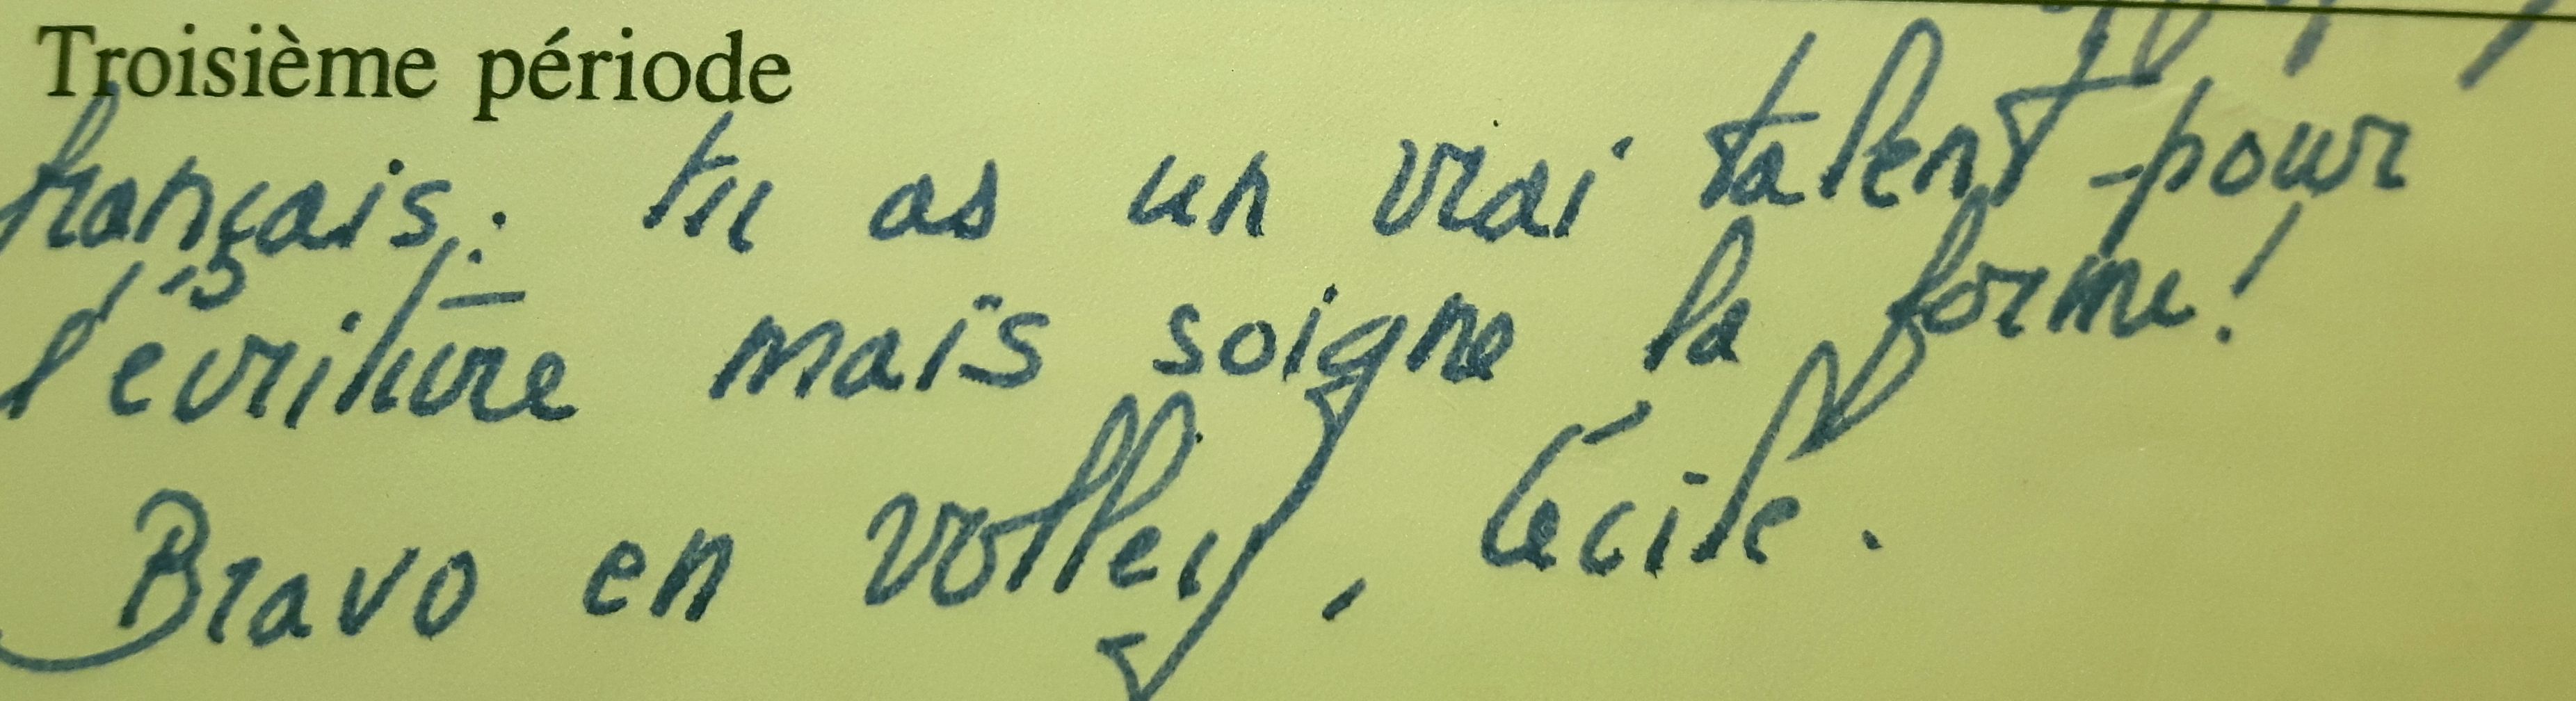 Troisième période
français : tu as un vrai talent pour
l'écriture mais soigne la forme !
Bravo en volley, Cécile.